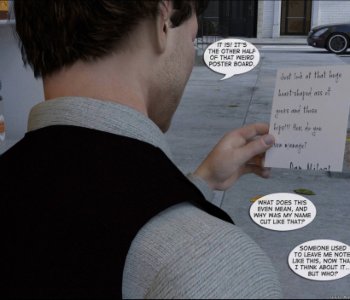 IT IS! IT'S
THE OTHER HALF
OF THAT WEIRD
POSTER BOARD.
Just look at that huge
heart-shaped ass of
yours and those
hips!!! How do you
even manage?
WHAT DOES THIS
EVEN MEAN, AND
WHY WAS MY NAME
CUT LIKE THAT?
SOMEONE USED
TO LEAVE ME NOTE
LIKE THIS, NOW THA
I THINK ABOUT IT...
BUT WHO?